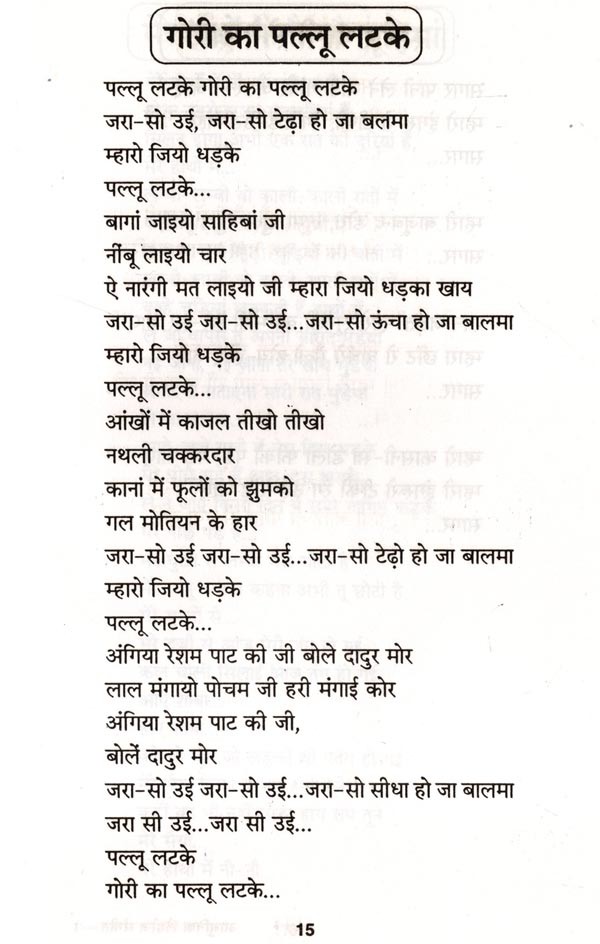 गोरी का पल्लू लटके
पल्लू लटके गोरी का पल्लू लटके
जरा-सो उई, जरा-सो टेढ़ा हो जा बलमा
म्हारो जियो धड़के
पल्लू लटके...
बागां जाइयो साहिबां जी
नींबू लाइयो चार
ऐ नारंगी मत लाइयो जी म्हारा जियो धड़का खाय
जरा-सो उई जरा-सो उई...जरा-सो ऊंचा हो जा बालमा
म्हारो जियो धड़के
पल्लू लटके...
आंखों में काजल तीखो तीखो
नथली चक्करदार
कानां में फूलों को झुमको
गल मोतियन के हार
जरा-सो उई जरा-सो उई...जरा-सो टेढ़ो हो जा बालमा
म्हारो जियो धड़के
पल्लू लटके...
अंगिया रेशम पाट की जी बोले दादुर मोर
लाल मंगायो पोचम जी हरी मंगाई कोर
अंगिया रेशम पाट की जी,
बोलें दादुर मोर
जरा-सो उई जरा-सो उई...जरा-सो सीधा हो जा बालमा
जरा सी उई...जरा सी उई...
पल्लू लटके
गोरी का पल्लू लटके...
15